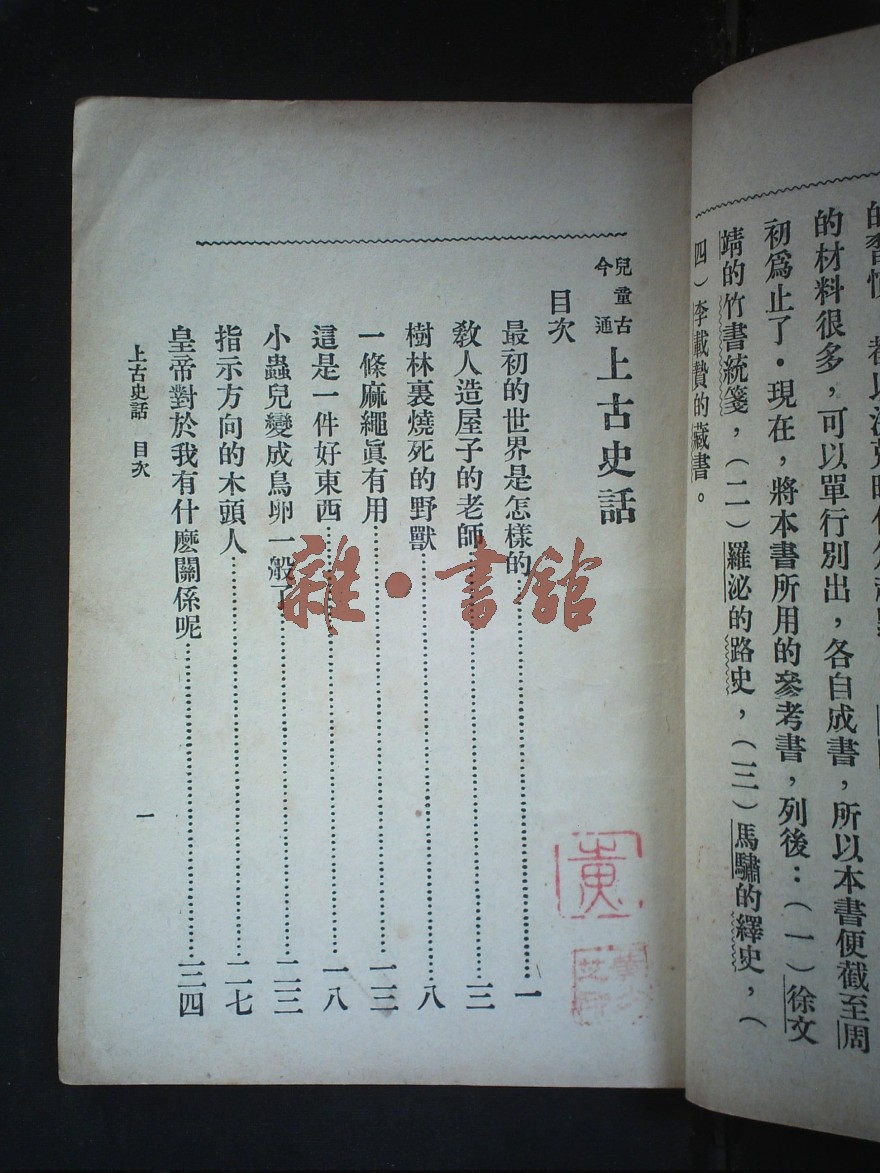 的材料很多，可以單行別出，各自成書，所以本書便截至周
初爲止了。現在，將本書所用的參考書，列後：（一）徐文
靖的竹書統箋，（二）羅泌的路史，（三）馬驌的繹史，（
四）李載贄的藏書。
兒童古今通
上古史話
目次
最初的世界是怎樣的……一
敎人造屋子的老師……三
樹林裏燒死的野獸……八
一條麻繩眞有用……一三
這是一件好東西……一八
小蟲兒變成鳥卵一般了……二三
指示方向的木頭人……二七
皇帝對於我有什麽關係呢……三四
上古史話 目次
一
雜·書館
黄